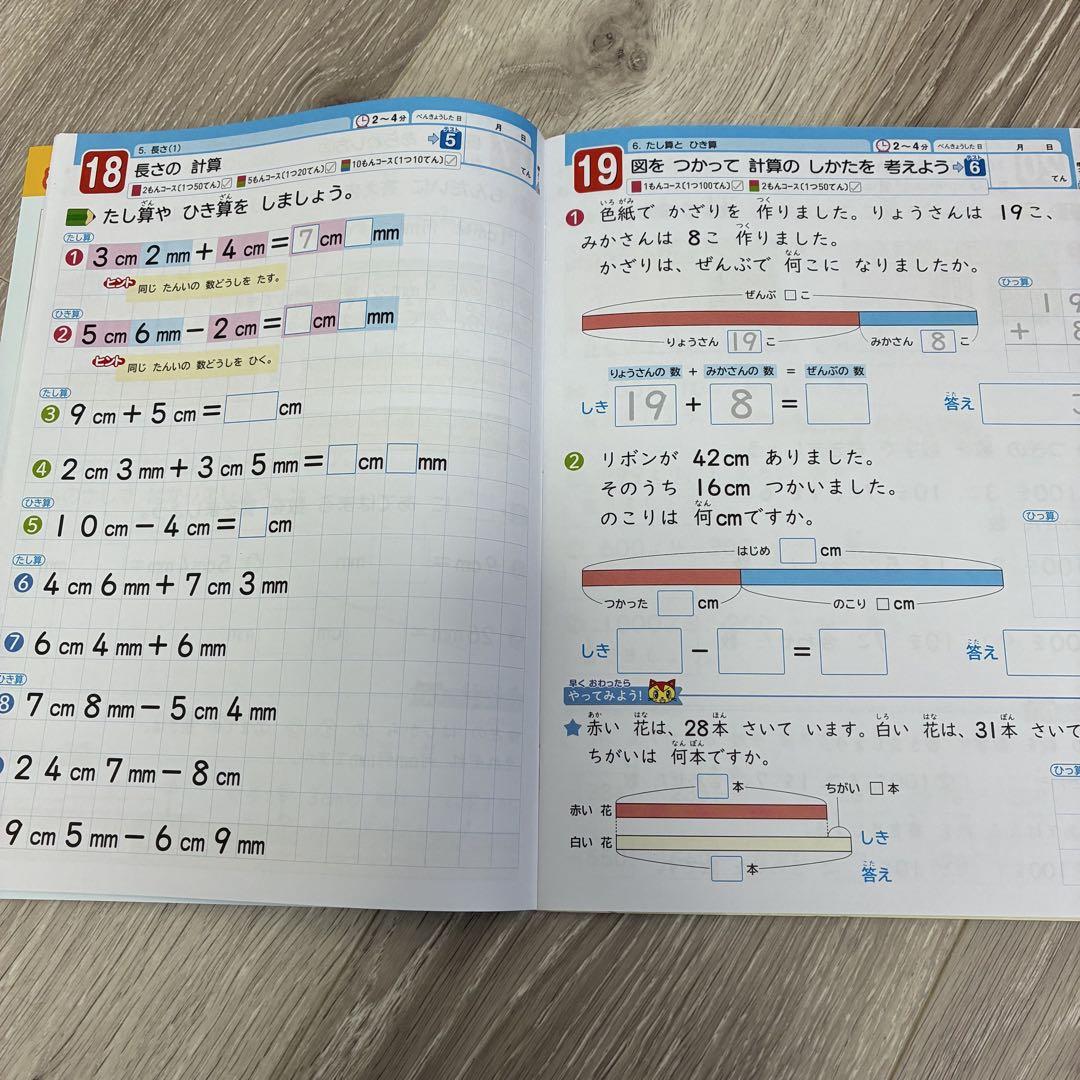 5. 長さ(1)
2〜4分
べんきょうした日
月 日
18
長さの 計算
テスト
5
2もんコース(1つ50てん)
5もんコース(1つ20てん)
10もんコース(1つ10てん)
てん
たし算や ひき算を しましょう。
ざん
ざん
たし算
1 3 cm 2 mm + 4 cm = 7 cm □ mm
ヒント 同じ たんいの 数どうしを たす。
ひき算
2 5 cm 6 mm − 2 cm = □ cm □ mm
ヒント 同じ たんいの 数どうしを ひく。
たし算
3 9 cm + 5 cm = □ cm
4 2 cm 3 mm + 3 cm 5 mm = □ cm □ mm
ひき算
5 10 cm − 4 cm = □ cm
たし算
6 4 cm 6 mm + 7 cm 3 mm
7 6 cm 4 mm + 6 mm
ひき算
8 7 cm 8 mm − 5 cm 4 mm
24 cm 7 mm − 8 cm
9 cm 5 mm − 6 cm 9 mm
6. たし算と ひき算
2〜4分
べんきょうした日
月 日
19
図を つかって 計算の しかたを 考えよう
テスト
6
1もんコース(1つ100てん)
2もんコース(1つ50てん)
てん
いろ がみ
つく
1 色紙で かざりを 作りました。りょうさんは 19こ、
つく
みかさんは 8こ 作りました。
なん
かざりは、ぜんぶで 何こに なりましたか。
ぜんぶ □ こ
りょうさん 19 こ
みかさん 8 こ
ひっ算
19
+ 8
りょうさんの 数 + みかさんの 数 = ぜんぶの 数
しき 19 + 8 = □
こた
答え
2 リボンが 42cm ありました。
そのうち 16cm つかいました。
なん
のこりは 何cmですか。
ひっ算
はじめ □ cm
つかった □ cm
のこり □ cm
しき □ − □ = □
こた
答え
早く おわったら
やってみよう!
あか はな ほん しろ はな ぽん
★ 赤い 花は、28本 さいて います。白い 花は、31本 さいて
なん ぼん
ちがいは 何本ですか。
ひっ算
□ 本
ちがい □ 本
赤い 花
白い 花
□ 本
しき
こた
答え